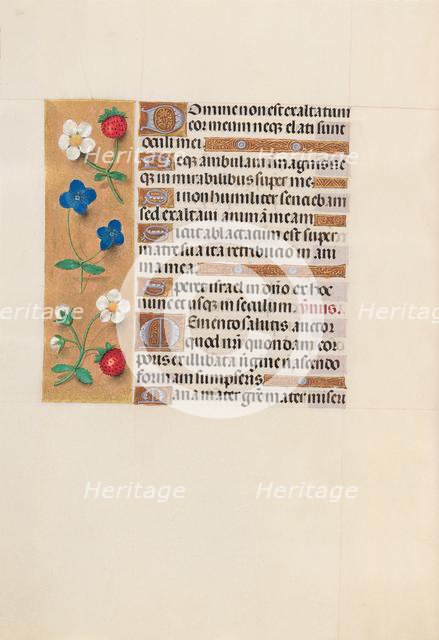 Domine non est exaltatum
cor meum neq; elati sunt
oculi mei
Neque ambulavi in magnis ne
q; in mirabilibus super me
Si non humiliter sentiebam
sed exaltavi animā meam
Sicut ablactatum est super
matre sua ita retributio in ani
ma mea
Speret israel in dño ex hoc
nunc et usq; in seculum ymus.
Memento salutis auctor
quod nr̄i quondam cor
poris ex illibata v̄gine nascendo
formam sumpseris
Maria mater gr̄e mater miseri
Heritage Heritage
Heritage Heritage
Heritage Heritage